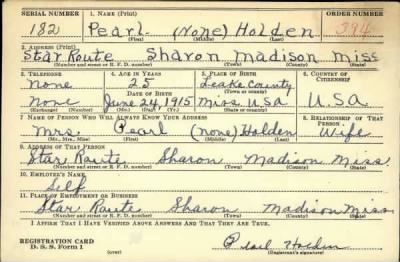 SERIAL NUMBER 1. NAME (Print) ORDER NUMBER
182 Pearl (None) Holden 394
(First) (Middle) (Last)
2. ADDRESS (Print)
Star Route Sharon Madison Miss
(Number and street or R. F. D. number) (Town) (County) (State)
3. TELEPHONE 4. AGE IN YEARS 5. PLACE OF BIRTH 6. COUNTRY OF CITIZENSHIP
None 25 Leake County
DATE OF BIRTH (Town or county)
None June 24, 1915 Miss. USA U.S.A.
(Exchange) (Number) (Mo.) (Day) (Yr.) (State or country)
7. NAME OF PERSON WHO WILL ALWAYS KNOW YOUR ADDRESS 8. RELATIONSHIP OF THAT PERSON
Mrs. Pearl (none) Holden Wife
(Mr., Mrs., Miss) (First) (Middle) (Last)
9. ADDRESS OF THAT PERSON
Star Route Sharon Madison Miss.
(Number and street or R. F. D. number) (Town) (County) (State)
10. EMPLOYER'S NAME
Self
11. PLACE OF EMPLOYMENT OR BUSINESS
Star Route Sharon Madison Miss
(Number and street or R. F. D. number) (Town) (County) (State)
I AFFIRM THAT I HAVE VERIFIED ABOVE ANSWERS AND THAT THEY ARE TRUE.
REGISTRATION CARD
D. S. S. Form 1 (over) Pearl Holden
(Registrant's signature)